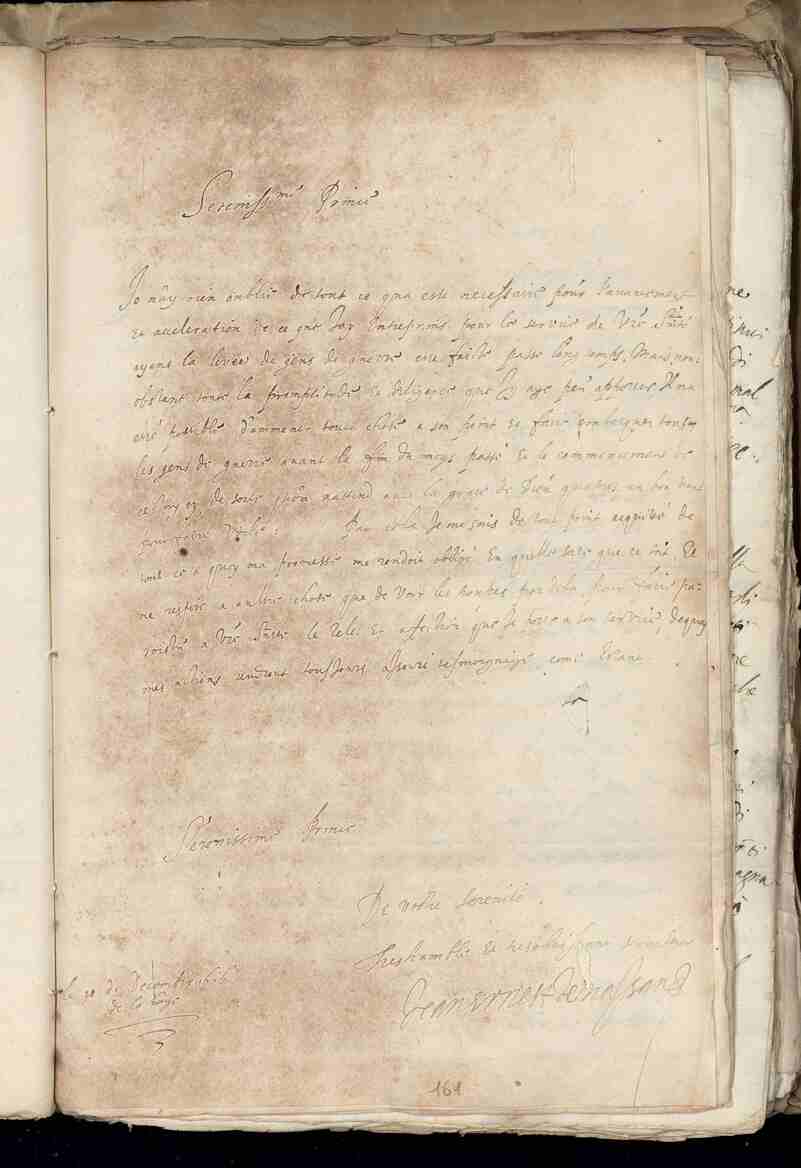 Sereniss.me Prince
Je n'ay rien oublié de tout ce qua esté necessaire pour l'avancement
et acceleration de ce que J'ay entreprins pour le service de Vre Sté
ayant la levée de gens de guerre esté faicte passe long temps, Mais non-
obstant toute la promptitude et diligence que j'y aye peu apporter, Il n'a
esté possible d'amener toute chose a son point et faire embarquer tous
les gens de guerre avant la fin du mois passé et le commencement de
ce, de sorte qu'on n'attend avec la grace de Dieu qu'un bon vent
pour faire voile. Par cela Je me suis de tout point acquité de
tout ce a quoy ma promesse me rendoit obligé En quelle sorte que ce soit, Et
ne restera aultre chose que de voir les trouppes par dela, pour faire pa-
roistre a Vre Sté le zele et affection que Je porte a son service, de quoy
mes actions rendront tousjours asseuré tesmoignaige, come Estant
Serenissime Prince
De vostre Serenité
Treshumble et tresobeissant serviteur
Jean Ernest de Nassau
le 10 de Decemb
de la Haye
161